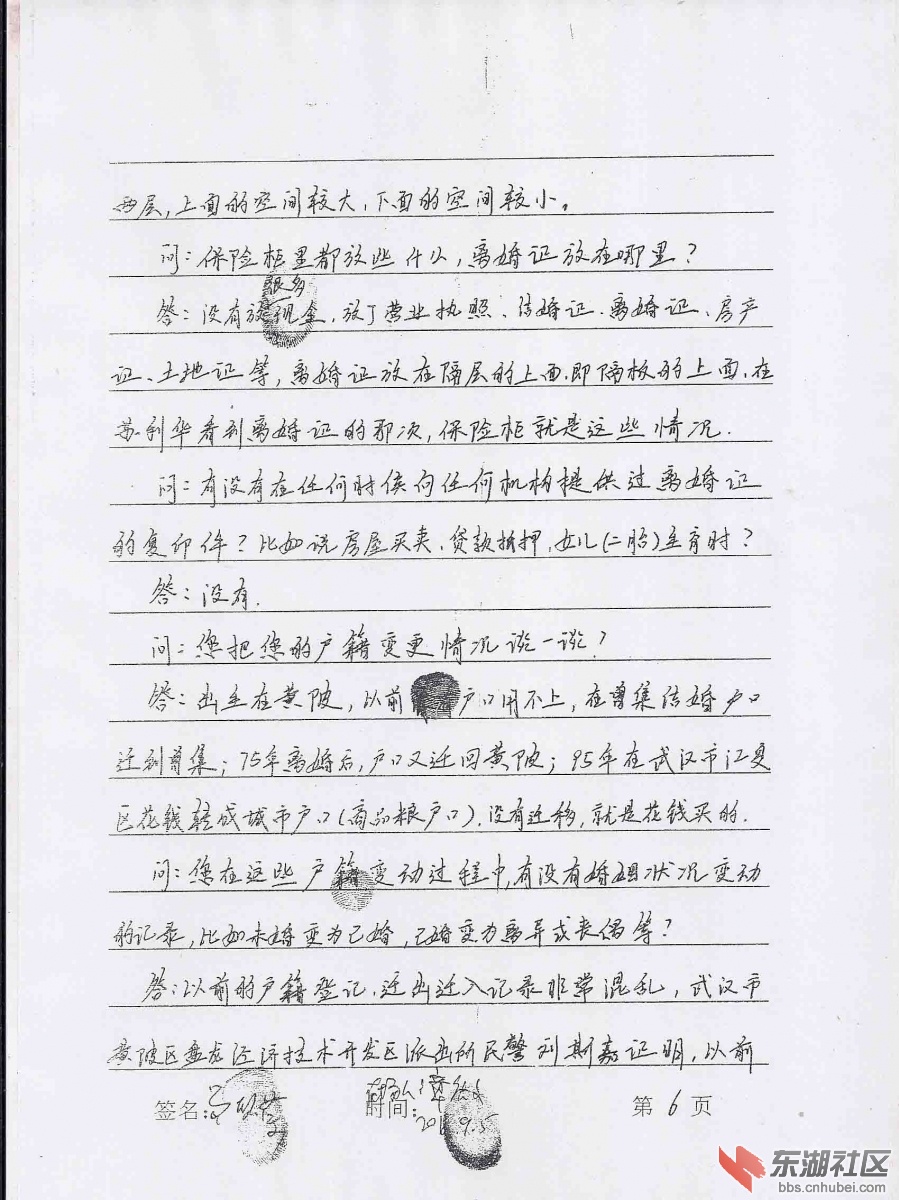 两层,上面的空间较大,下面的空间较小。
问:保险柜里都放些什么,离婚证放在哪里?
很多
答:没有放现金,放了营业执照、结婚证、离婚证、房产
证、土地证等,离婚证放在隔层的上面,即隔板的上面,在
苏利华看到离婚证的那次,保险柜就是这些情况.
问:有没有在任何时侯向任何机构提供过离婚证
的复印件?比如说房屋买卖、贷款抵押,女儿(二胎)生育时?
答:没有.
问:您把您的户籍变更情况谈一谈?
答:出生在黄陂,以前户口用不上,在曾集结婚户口
迁到曾集;75年离婚后,户口又迁回黄陂;95年在武汉市江夏
区花钱转成城市户口(商品粮户口),没有迁移,就是花钱买的.
问:您在这些户籍变动过程中,有没有婚姻状况变动
的记录,比如未婚变为已婚,已婚变为离异或丧偶等?
答:以前的户籍登记,迁出迁入记录非常混乱,武汉市
黄陂区盘龙经济技术开发区派出所民警刘斯嘉证明,以前
签名: 时间: 9.5 第 6 页
东湖社区
bbs.cnhubei.com